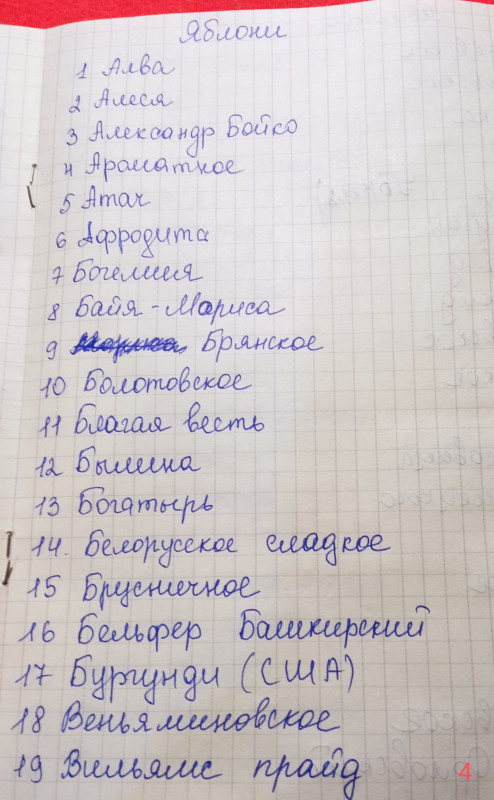 Яблони
1 Алва
2 Алеся
3 Александр Бойко
4 Ароматное
5 Атач
6 Афродита
7 Богемия
8 Байя-Мариса
9 Брянское
10 Болотовское
11 Благая весть
12 Былина
13 Богатырь
14. Белорусское сладкое
15 Брусничное
16 Бельфер Башкирский
17 Бургунди (США)
18 Веньяминовское
19 Вильямс прайд
4